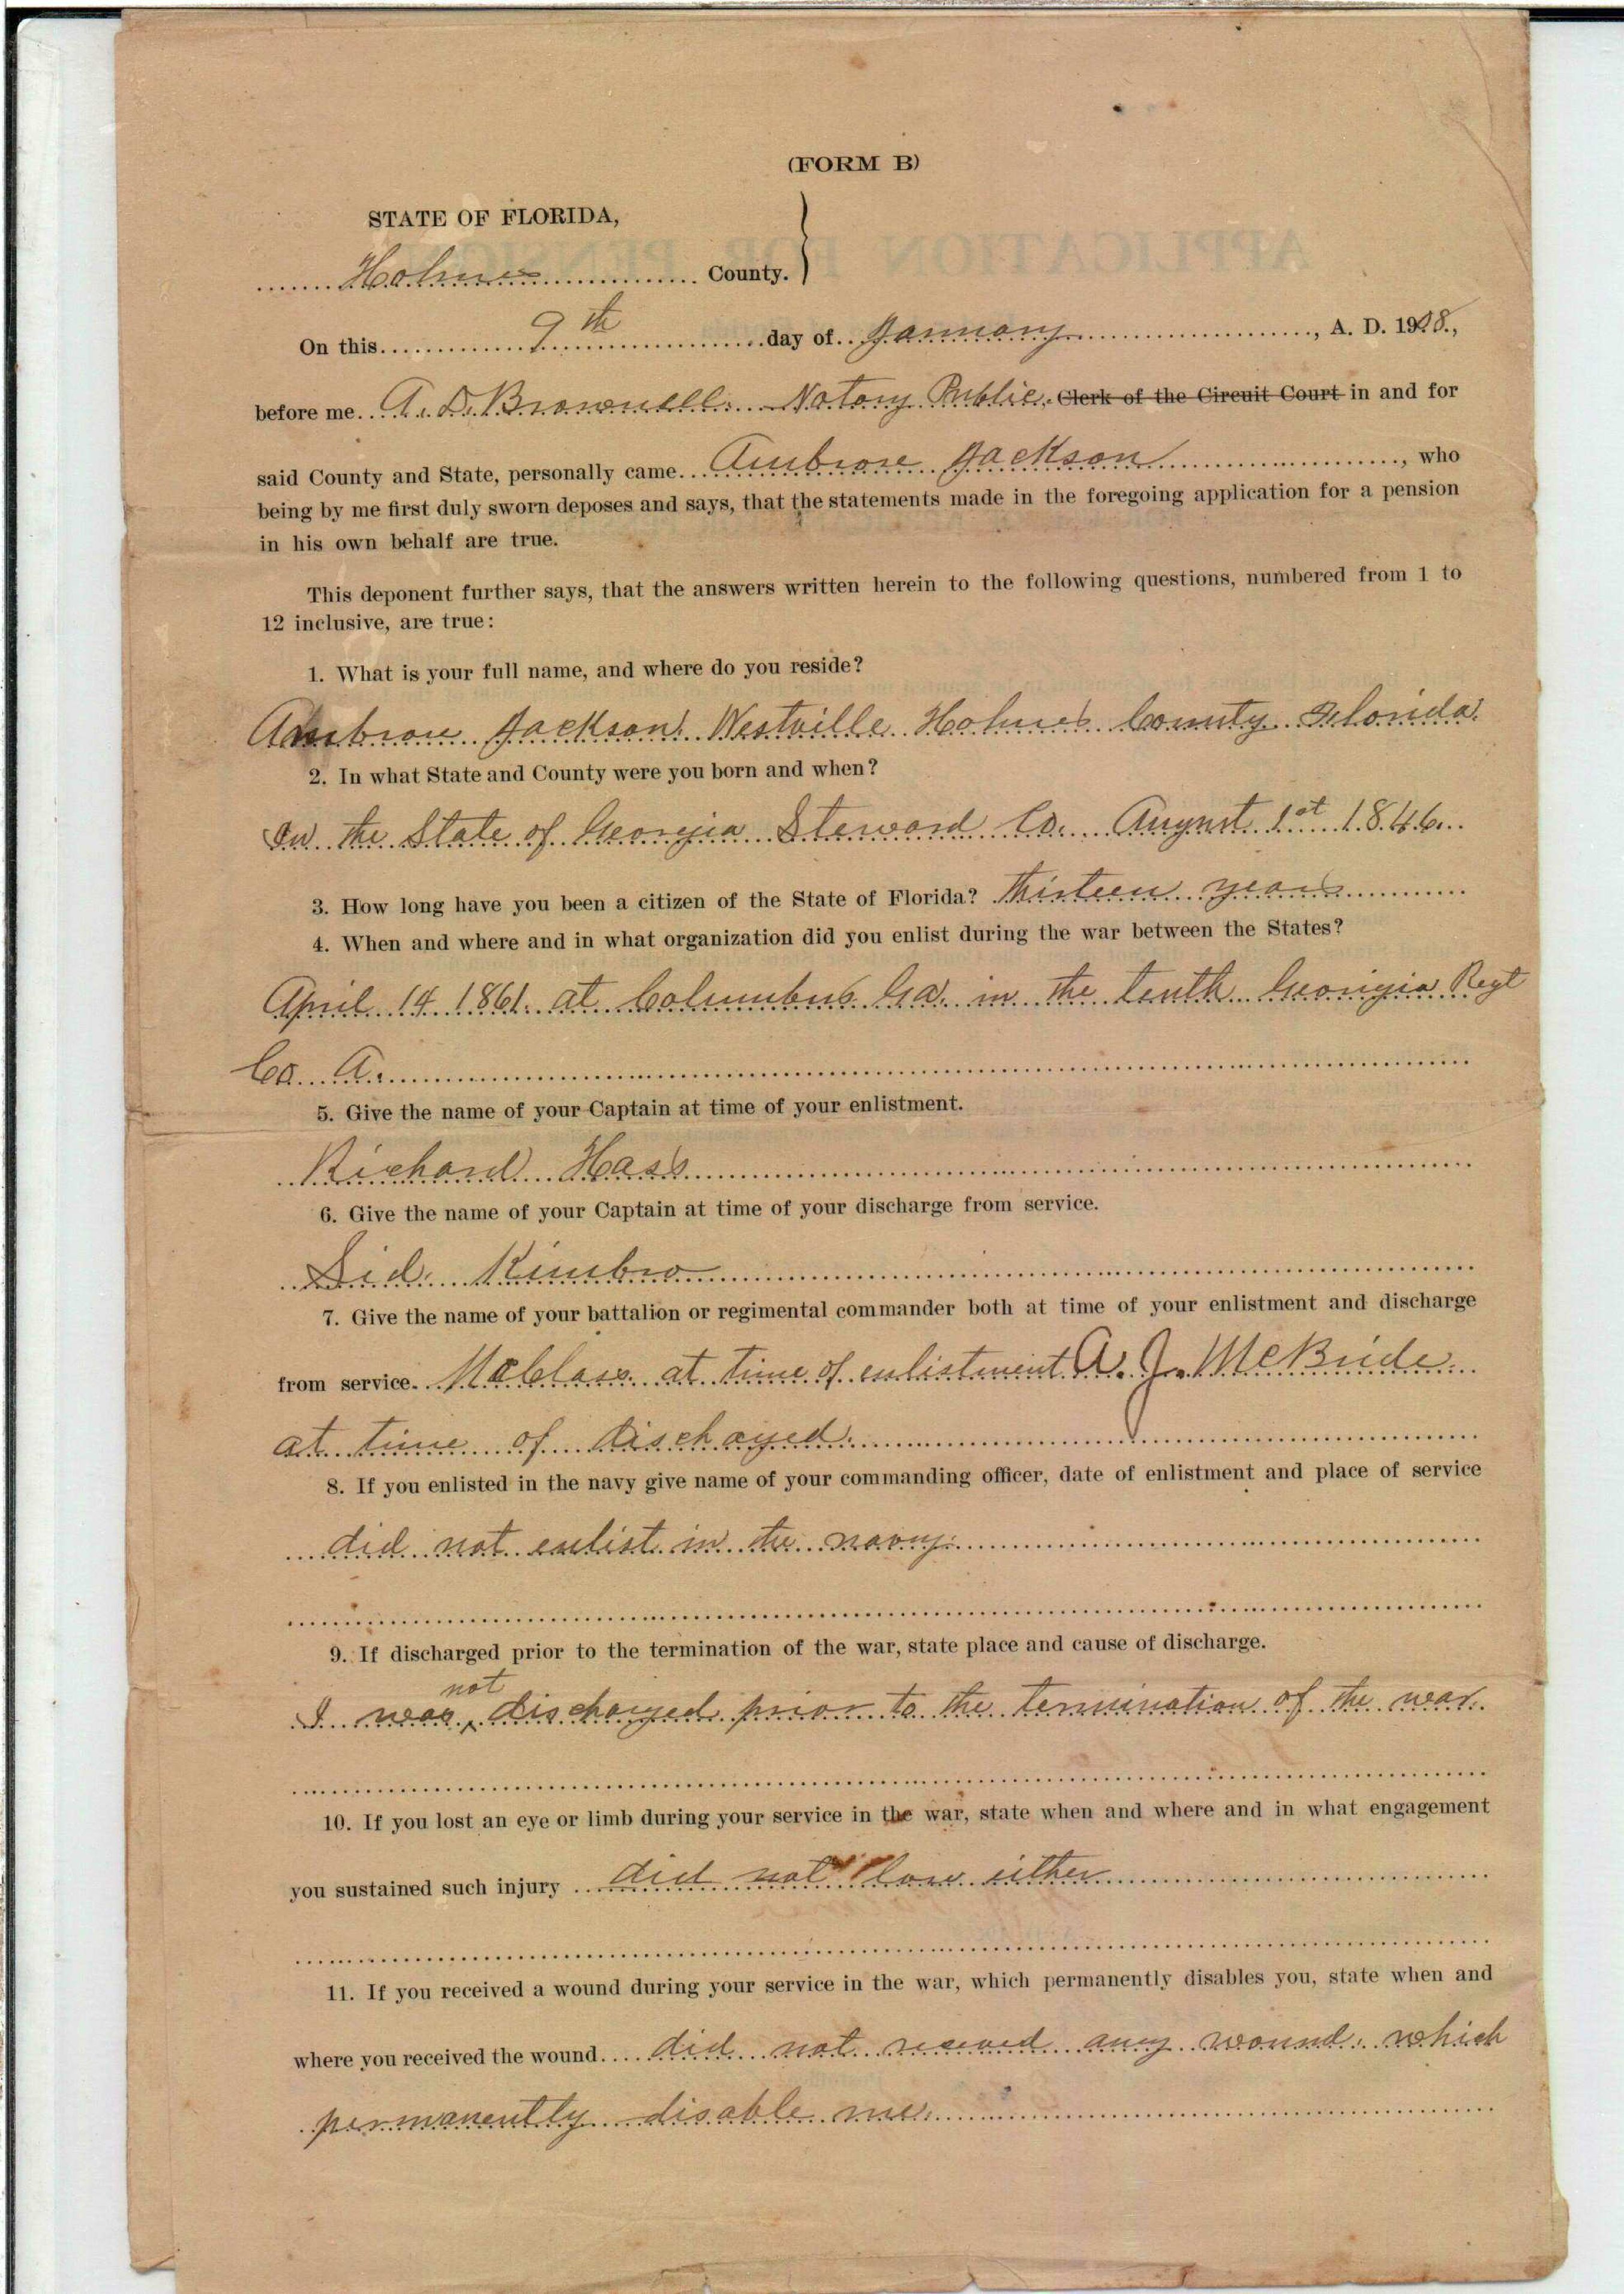 (FORM B)
STATE OF FLORIDA,
Holmes County.
On this 9th day of January, A. D. 1908.,
before me A. D. Brownell Notary Public. Clerk of the Circuit Court in and for
said County and State, personally came Ambrose Jackson, who
being by me first duly sworn deposes and says, that the statements made in the foregoing application for a pension
in his own behalf are true.
This deponent further says, that the answers written herein to the following questions, numbered from 1 to
12 inclusive, are true:
1. What is your full name, and where do you reside?
Ambrose Jackson Westville Holmes County Florida.
2. In what State and County were you born and when?
In the State of Georgia Steward Co. August 1st 1846.
3. How long have you been a citizen of the State of Florida? Thirteen years
4. When and where and in what organization did you enlist during the war between the States?
April 14 1861. at Columbus Ga. in the tenth Georigia Regt
Co. A.
5. Give the name of your Captain at time of your enlistment.
Richard Hass
6. Give the name of your Captain at time of your discharge from service.
Sid. Kimbro
7. Give the name of your battalion or regimental commander both at time of your enlistment and discharge
from service. McClass at time of enlistment A. J. McBride.
at time of discharged.
8. If you enlisted in the navy give name of your commanding officer, date of enlistment and place of service
did not enlist in the navy.
9. If discharged prior to the termination of the war, state place and cause of discharge.
I was not discharged prior to the termination of the war.
10. If you lost an eye or limb during your service in the war, state when and where and in what engagement
you sustained such injury did not lose either
11. If you received a wound during your service in the war, which permanently disables you, state when and
where you received the wound. did not received any wound. which
permanently disable me.